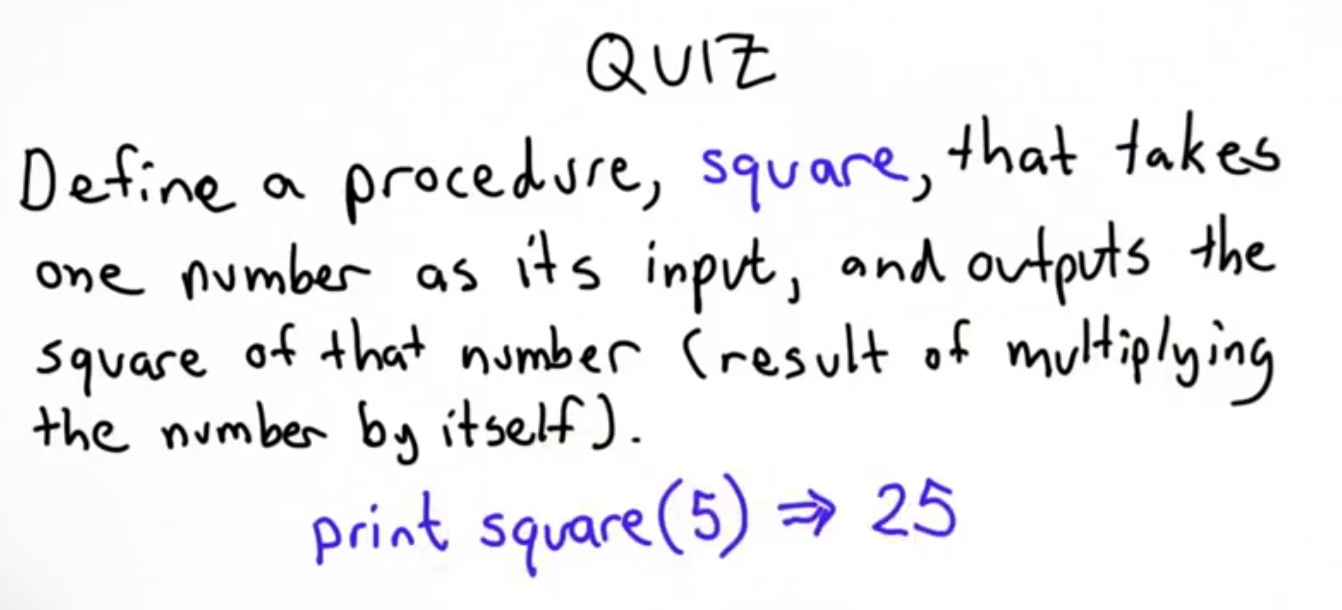 QUIZ
Define a procedure, square, that takes
one number as its input, and outputs the
square of that number (result of multiplying
the number by itself).
print square(5) ⇒ 25